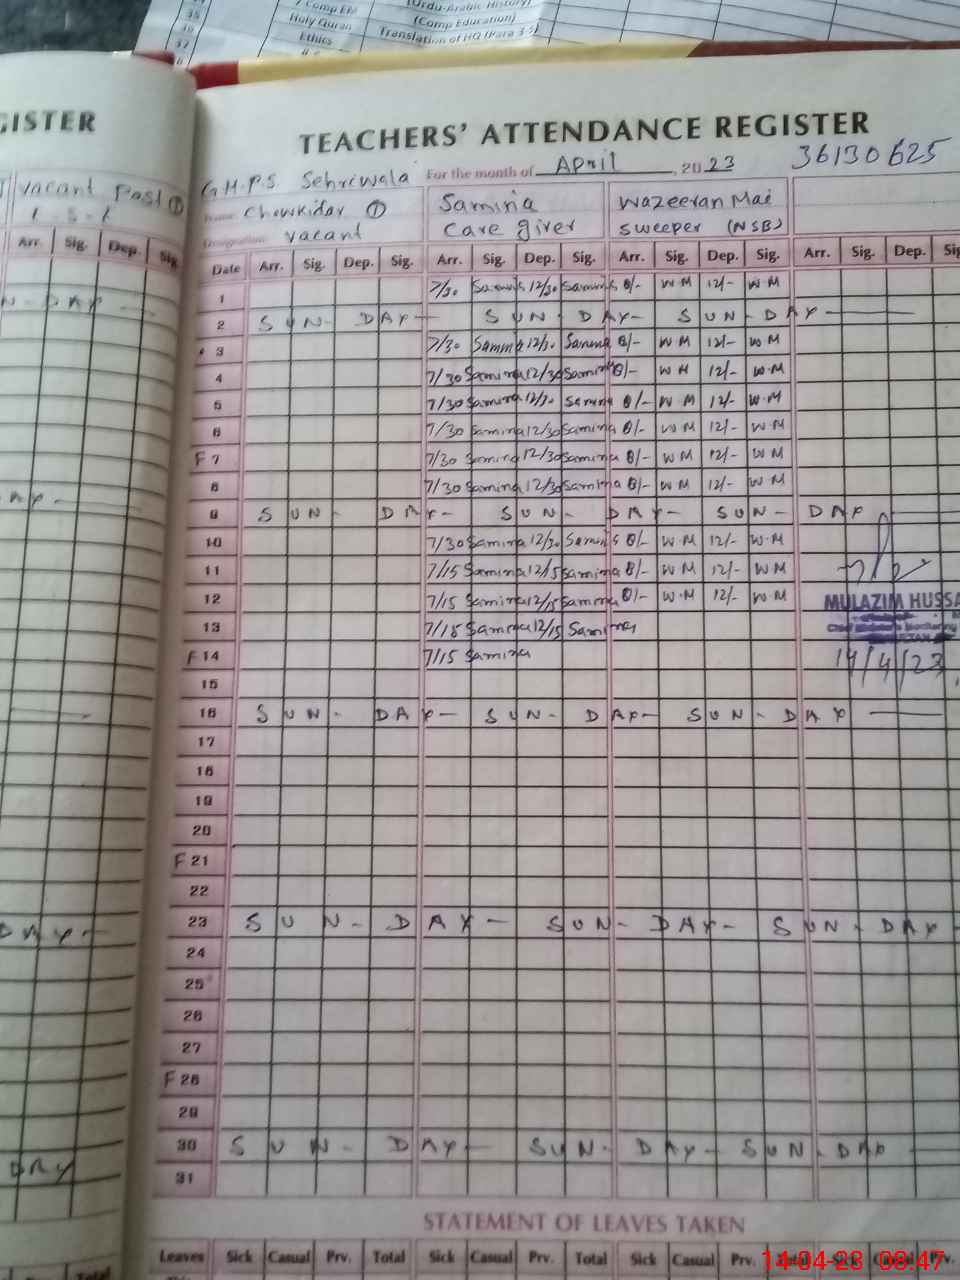 35
7 Comp EM
(Urdu-Arabic History)
36
Holy Quran
(Comp Education)
37
Ethics
Translation of HQ (Para 3-5)
GISTER
TEACHERS' ATTENDANCE REGISTER
G.M.P.S Sehriwala For the month of April, 2023 36130625
vacant Post ①
Name Chowkidar ① Samina Wazeeran Mai
Designation vacant Care giver Sweeper (NSB)
Arr. Sig. Dep. Sig.
Date Arr. Sig. Dep. Sig. Arr. Sig. Dep. Sig. Arr. Sig. Dep. Sig. Arr. Sig. Dep. Sig
1 7/30 Samina 12/30 Samina 8/- W M 12/- W.M
2 S U N - D A Y - S U N - D A Y - S U N - D A Y -
3 7/30 Samina 12/30 Samina 8/- W M 12/- W.M
4 7/30 Samina 12/30 Samina 8/- W M 12/- W.M
5 7/30 Samina 12/30 Samina 8/- W M 12/- W.M
6 7/30 Samina 12/30 Samina 8/- W M 12/- W.M
F 7 7/30 Samina 12/30 Samina 8/- W M 12/- W M
8 7/30 Samina 12/30 Samina 8/- W M 12/- W.M
9 S U N - D A Y - S U N - D A Y - S U N - D A Y
10 7/30 Samina 12/30 Samina 8/- W.M 12/- W.M
11 7/15 Samina 12/15 Samina 8/- W M 12/- W M
12 7/15 Samina 12/15 Samina 8/- W.M 12/- W.M
MULAZIM HUSSA
13 7/15 Samina 12/15 Samina
F 14 7/15 Samina
14/4/23
15
16 S U N - D A Y - S U N - D A Y - S U N - D A Y
17
18
19
20
F 21
22
23 S U N - D A Y - S U N - D A Y - S U N - D A Y -
24
25
26
27
F 28
29
30 S U N - D A Y - S U N - D A Y - S U N - D A Y
31
STATEMENT OF LEAVES TAKEN
Leaves Sick Casual Prv. Total Sick Casual Prv. Total Sick Casual Prv. Total Sick Casual Prv.
Total
14-04-23 08:47